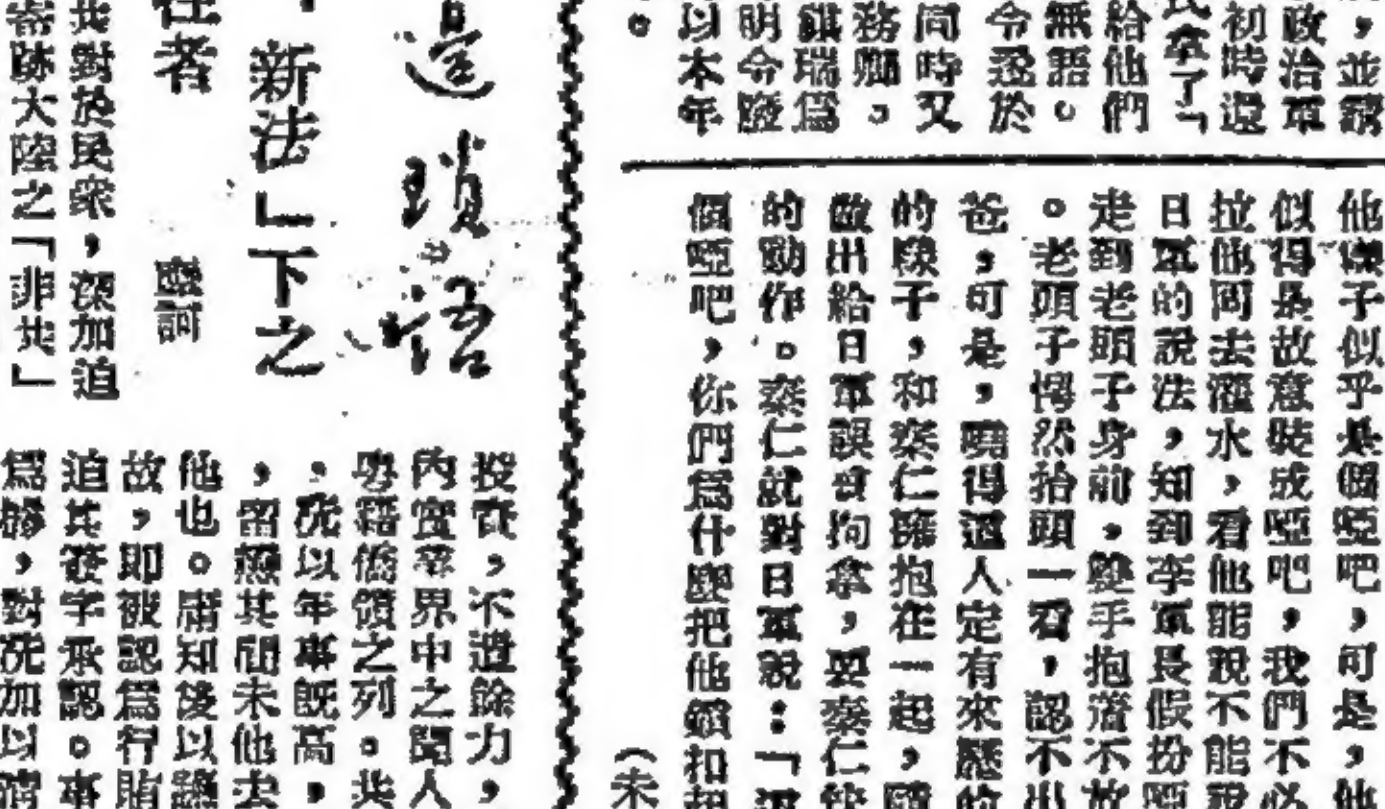 ，並
政治軍
初時還
民拿了「
給他們
無語。
令
同時又
務卿。
瑞爲
明令
以本年
。
他樣子似乎是個啞吧，可是，他
似得是故意裝成啞吧，我們不必
拉他同去灌水，看他能說不能說
日軍的說法，知到李軍長假扮啞
走到老頭子身前，雙手抱着不放
。老頭子愕然抬頭一看，認不出
爸，可是，曉得這人定有來歷的
的駛子，和秦仁擁抱在一起，
做出給日軍誤會拘拿，要秦仁
的動作。秦仁就對日軍說：「這
個啞吧，你們爲什麼把他
（未
邊瑣語
新法」下之
任者
共對於民衆，深加迫
跡大陸之「非共」
投資，不遺餘力，
內實業界中之聞人
粵籍僑領之列。共
，冼以年事既高，
，留無其間未他去
他也。庸知後以
故，即被認爲行賄
迫其簽字承認。事
爲夥，對冼加以